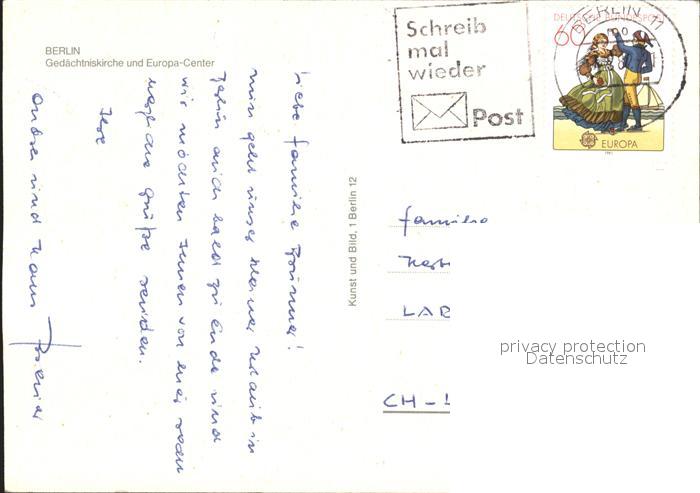 BERLIN
Gedächtniskirche und Europa-Center
Schreib
mal
wieder
Post
BERLIN 11
DEUTSCHE BUNDESPOST
60
EUROPA
1981
Liebe Familie
nun geht unser kleiner Urlaub in
Berlin auch bald zu Ende und
wir möchten Ihnen von hier
Grüße senden.
Ihre
und Hans
Kunst und Bild, 1 Berlin 12
Familie
LAR
CH - L
privacy protection
Datenschutz